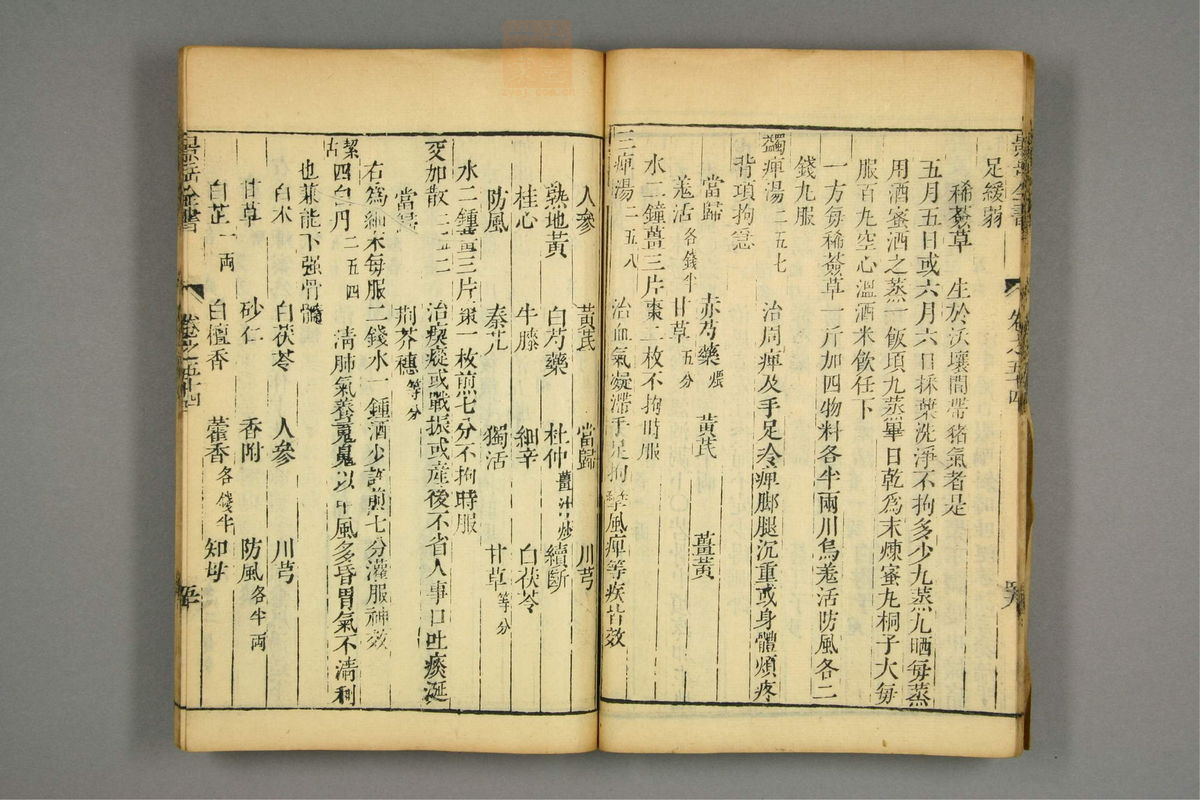 足緩弱
豨薟草 生於沃壤間帶猪氣者是
五月五日或六月六日採葉洗淨不拘多少九蒸九晒每蒸
用酒蜜洒之蒸一飯頃九蒸畢日乾爲末煉蜜丸桐子大每
服百丸空心溫酒米飲任下
一方每豨薟草一斤加四物料各半兩川烏羌活防風各二
錢丸服
蠲痺湯 二五七 治周痺及手足冷痺脚腿沉重或身體煩疼
背項拘急
當歸 赤芍藥 煨 黃芪 薑黃
羌活 各錢半 甘草 五分
水二鐘薑三片棗二枚不拘時服
三痺湯 二五八 治血氣凝滯手足拘攣風痺等疾皆效
人參 黃芪 當歸 川芎
熟地黃 白芍藥 杜仲 薑汁炒 續斷
桂心 牛膝 細辛 白茯苓
防風 秦艽 獨活 甘草 等分
水二鍾薑三片棗一枚煎七分不拘時服
交加散 二五二 治瘈瘲或戰振或産後不省人事口吐痰涎
當歸 荆芥穗 等分
右爲細末每服二錢水一鍾酒少許煎七分灌服神效
潔古四白丹 二五四 清肺氣養魄以中風多昏冒氣不清利
也兼能下强骨髓
白朮 白茯苓 人參 川芎
甘草 砂仁 香附 防風 各半兩
白芷 一兩 白檀香 藿香 各錢半 知母
景岳全書 卷之五十四